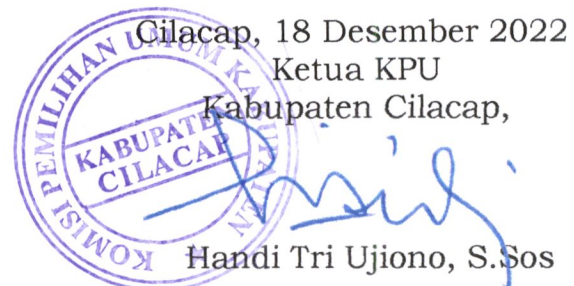 Cilacap, 18 Desember 2022
Ketua KPU
Kabupaten Cilacap,
KOMISI PEMILIHAN UMUM KABUPATEN
KABUPATEN
CILACAP
Handi Tri Ujiono, S.Sos